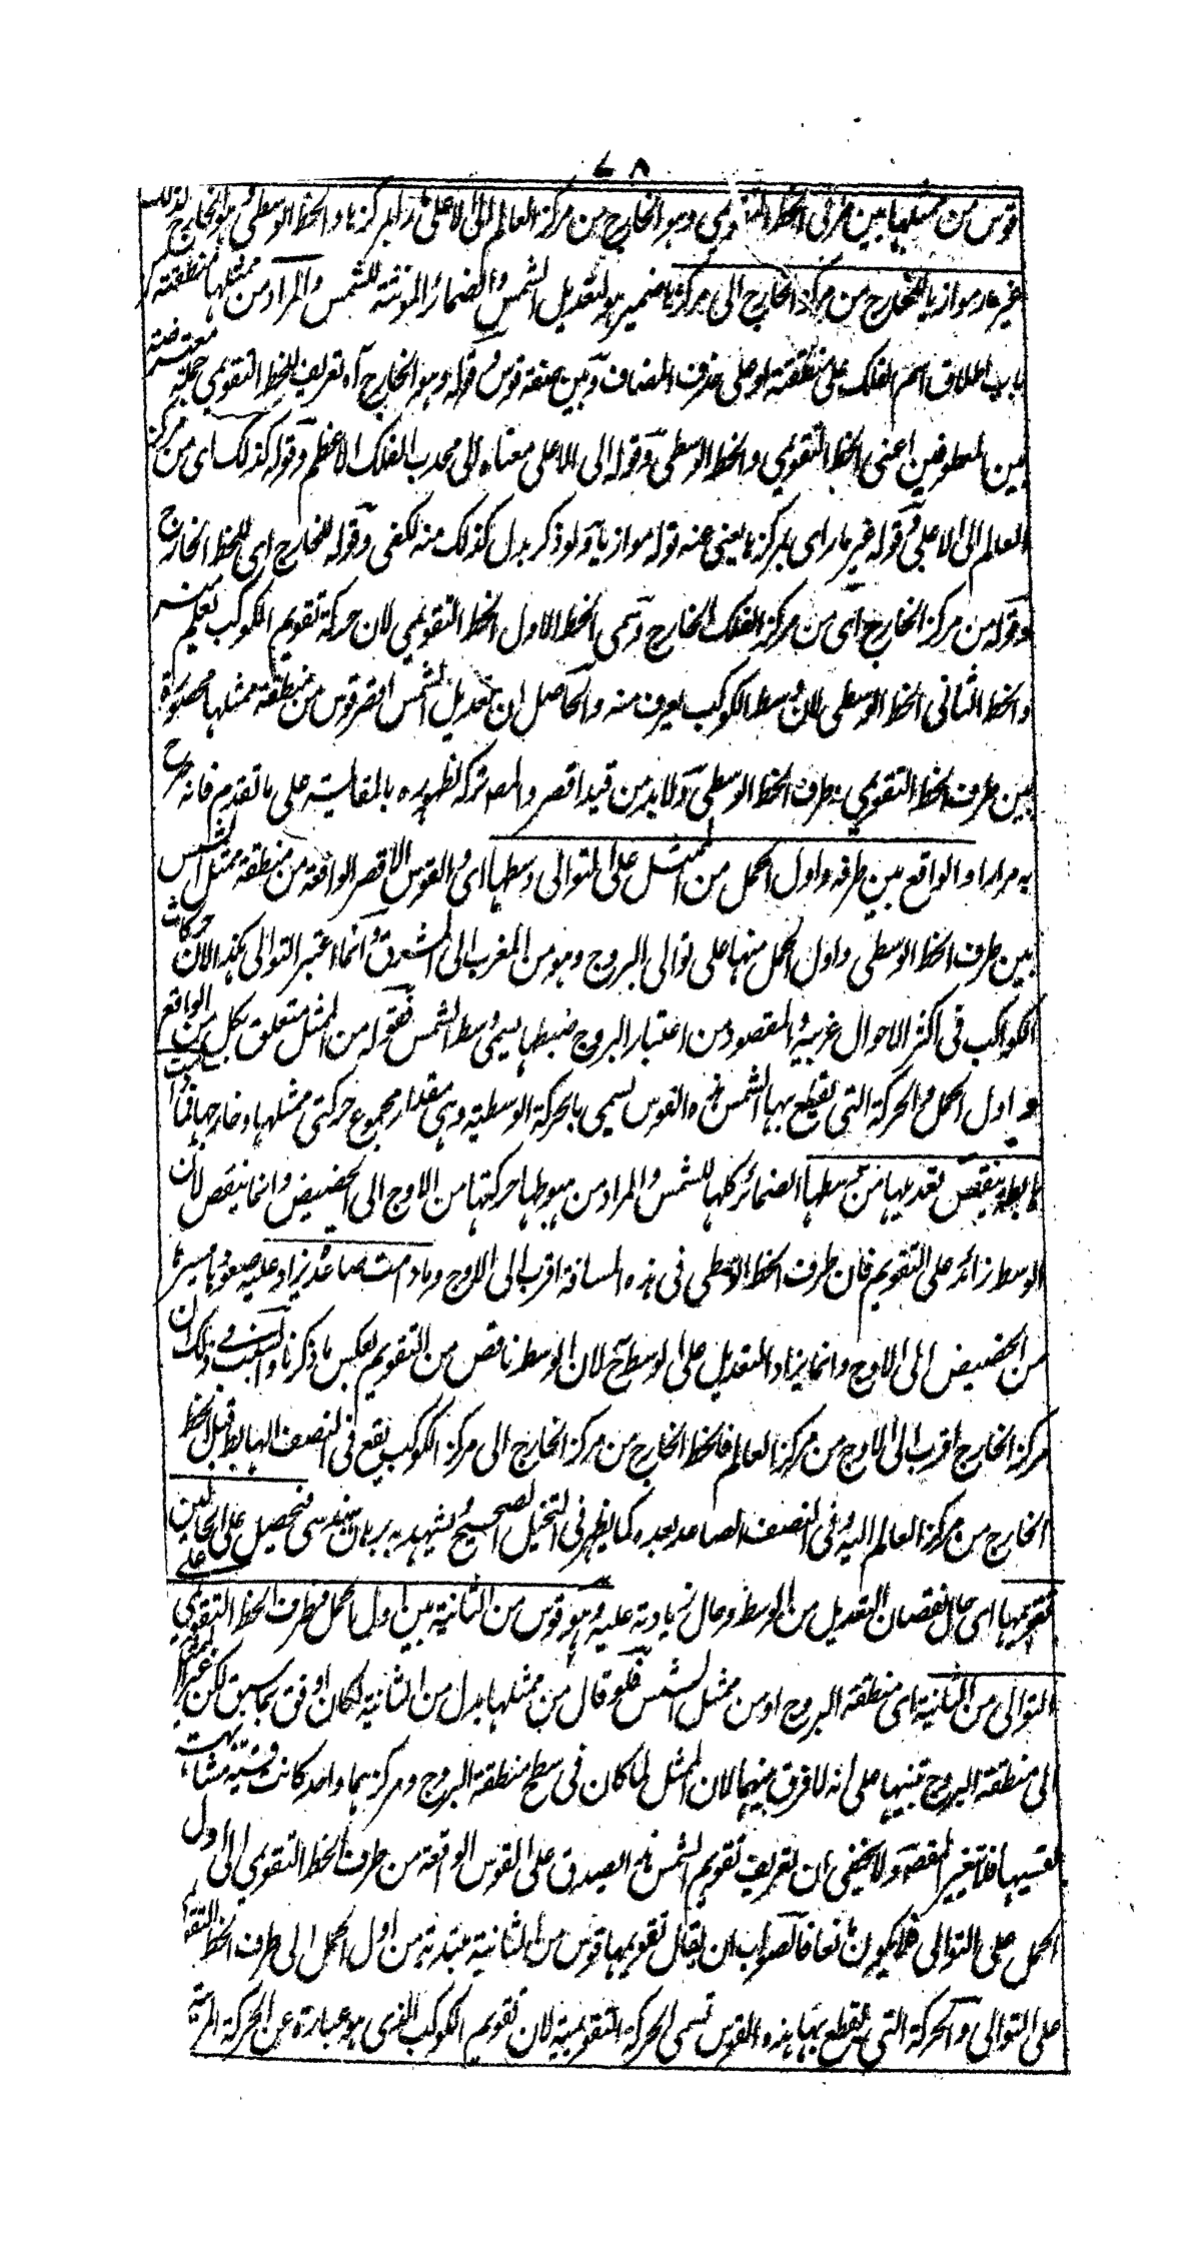 ٧٨
قوس من ممثلها بين طرفي الخط التقويمي وهو الخارج من مركز العالم الى الاعلى مارا بمركزها والخط الوسطى وهو الخارج كذلك
غير مار موازيا للخارج من مركز الخارج الى مركزها ضمير هو لتعديل الشمس والضمائر المونثة للشمس والمراد من ممثلها منطقته
باب اطلاق اسم الفلك على منطقته او على حذف المضاف وبين صفة قوس وقوله وهو الخارج آه تعريف للخط التقويمي جملة معترضة
بين المعطوفين اعنى الخط التقويمي والخط الوسطى وقوله الى الاعلى معناه الى محدب الفلك الاعظم وقوله كذلك اى من مركز
العالم الى الاعلى وقوله غير مار اى بمركزها يغنى عنه قوله موازيا ولو ذكر بدل كذلك منه لكفى وقوله للخارج اى للخط الخارج
وقوله من مركز الخارج اى من مركز الفلك الخارج وسمى الخط الاول الخط التقويمي لان حركة تقويم الكوكب تعلم منه
والخط الثانى الخط الوسطى لان وسط الكوكب يعرف منه والحاصل ان تعديل الشمس اقصر قوس من منطقة ممثلها محصورة
بين طرف الخط التقويمي وطرف الخط الوسطى ولابد من قيد اقصر والمص تركه لظهوره بالمقايسة على ما تقدم فانه صرح
به مرارا والواقع بين طرفه واول الحمل من الممثل على التوالى وسطها اى والقوس الاقصر الواقعة من منطقة ممثل الشمس
بين طرف الخط الوسطى واول الحمل منها على توالى البروج وهو من المغرب الى المشرق وانما اعتبر التوالى هكذا لان حركات
الكواكب فى اكثر الاحوال غربية والمقصود من اعتبار البروج ضبطها يسمى وسط الشمس فقوله من الممثل متعلق بكل من الواقع
و اول الحمل والحركة التى تقطع بها الشمس هذه القوس تسمى بالحركة الوسطية وهى مقدار مجموع حركتى ممثلها وخارجها فما دامت
هابطة ينقص تعديلها من وسطها الضمائر كلها للشمس والمراد من هبوطها حركتها من الاوج الى الحضيض وانما ينقص لان
الوسط زائد على التقويم فان طرف الخط الوسطى فى هذه المسافة اقرب الى الاوج ومادامت صاعدة يزاد عليه صعودها مسيرها
من الحضيض الى الاوج وانما يزاد التعديل على الوسط ح لان الوسط ناقص من التقويم بعكس ما ذكرنا والسبب فى ذلك ان
مركز الخارج اقرب الى الاوج من مركز العالم فالخط الخارج من مركز الخارج الى مركز الكوكب يقع فى النصف الهابط قبل الخط
الخارج من مركز العالم اليه وفى النصف الصاعد بعده كما يظهر فى التخيل الصحيح ويشهد به برهان هندسى فتحصيل على الحالين
تقويمها اى حال نقصان التعديل من الوسط وحال زيادته عليه وهو قوس من الثانية بين اول الحمل وطرف الخط التقويمي على
التوالى من الثانية اى منطقة البروج او من ممثل الشمس فلو قال من ممثلها بدل من الثانية لكان اوفق بما سبق لكن غير المص
الى منطقة البروج تنبيها على انه لا فرق بينهما لان الممثل لما كان فى سطح منطقة البروج ومركزهما واحد كانت قسيه مشابهت
لقسيها فلا تغير المقصود ولا يخفى ان تعريف تقويم الشمس هذا يصدق على القوس الواقعة من طرف الخط التقويمي الى اول
الحمل على التوالى فلا يكون مانعا فالصواب ان يقال تقويمها قوس من الثانية مبتدئة من اول الحمل الى طرف الخط التقويمي
على التوالى والحركة التى تقطع بها هذه القوس تسمى الحركة التقويمية لان تقويم الكوكب الذى هو عبارة عن الحركة